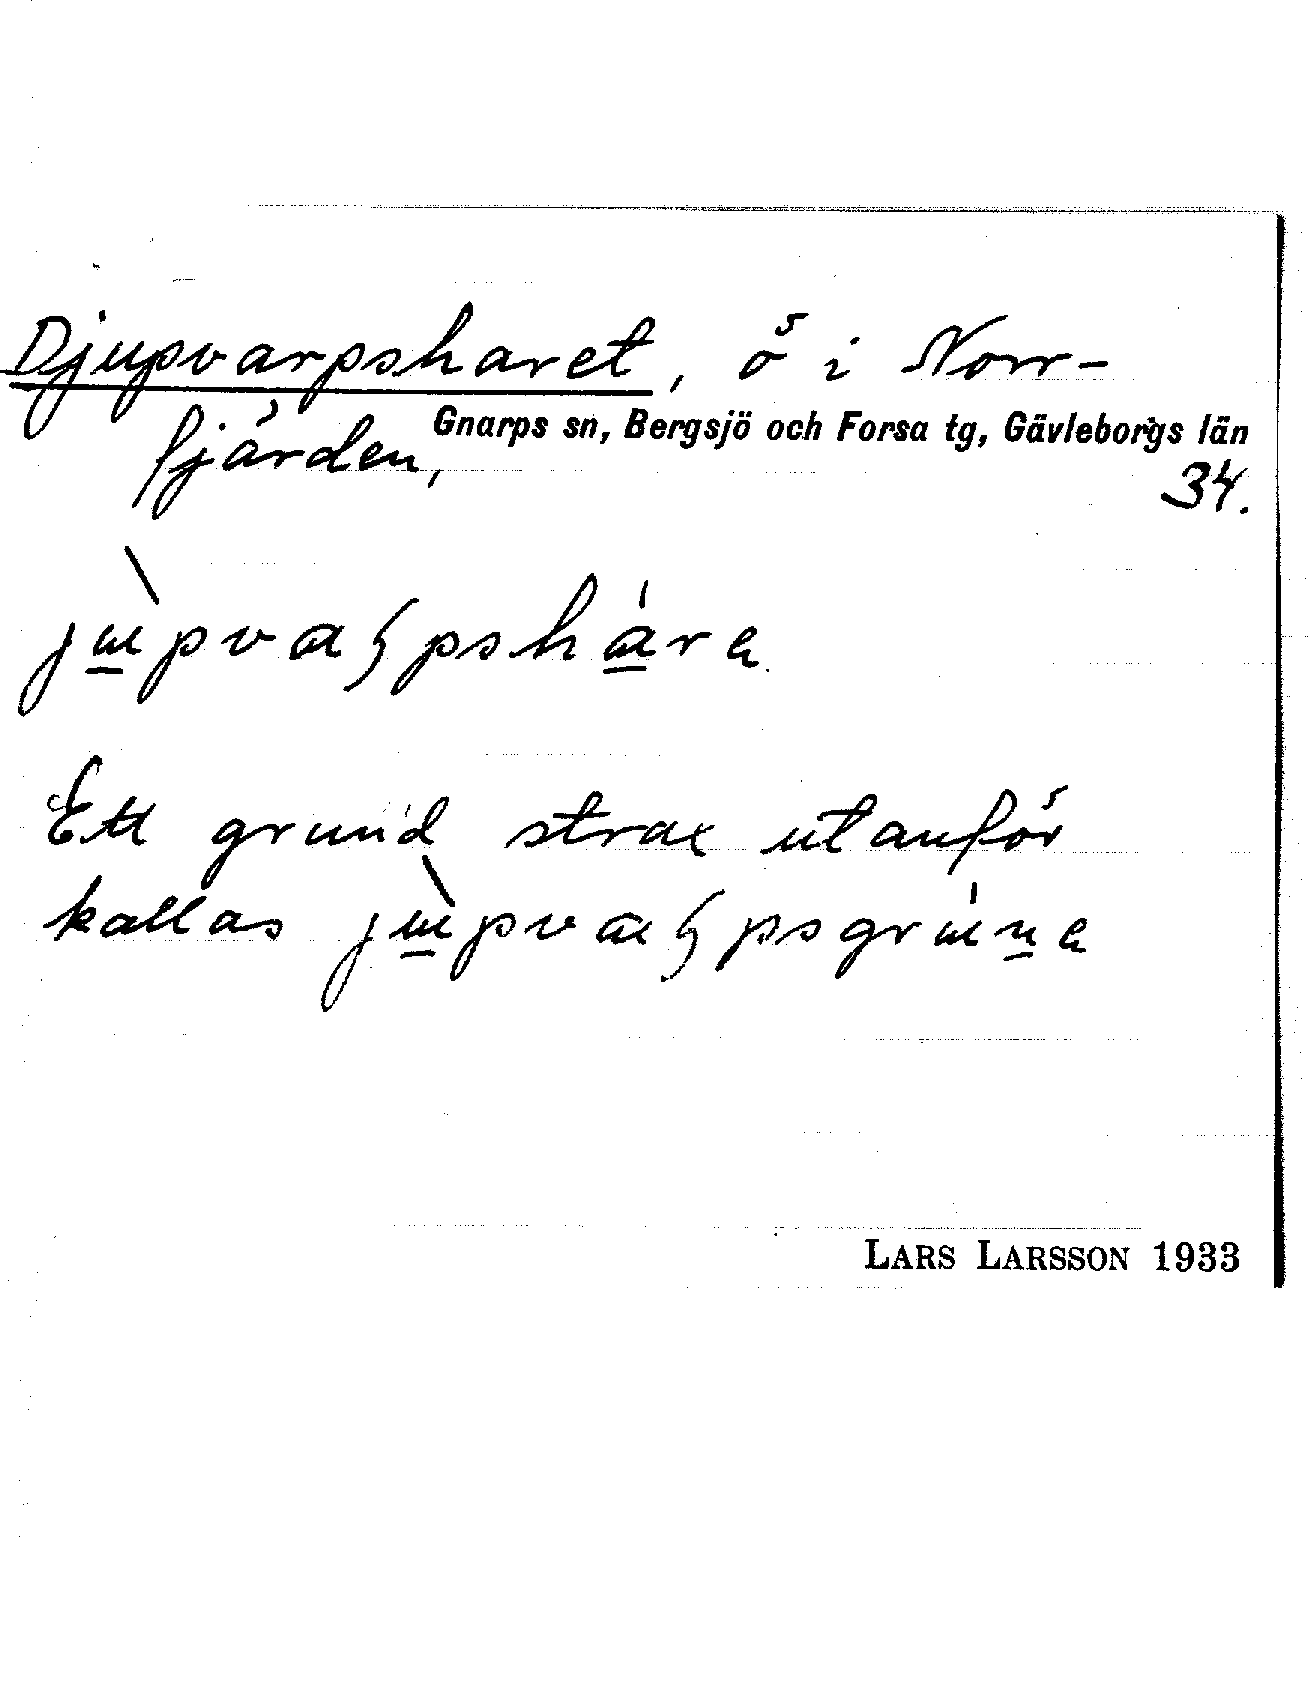 Djupvarpsharet, ö i Norr-
fjärden,
Gnarps sn, Bergsjö och Forsa tg, Gävleborgs län
34.
Ett grund strax utanför
kallas
LARS LARSSON 1933